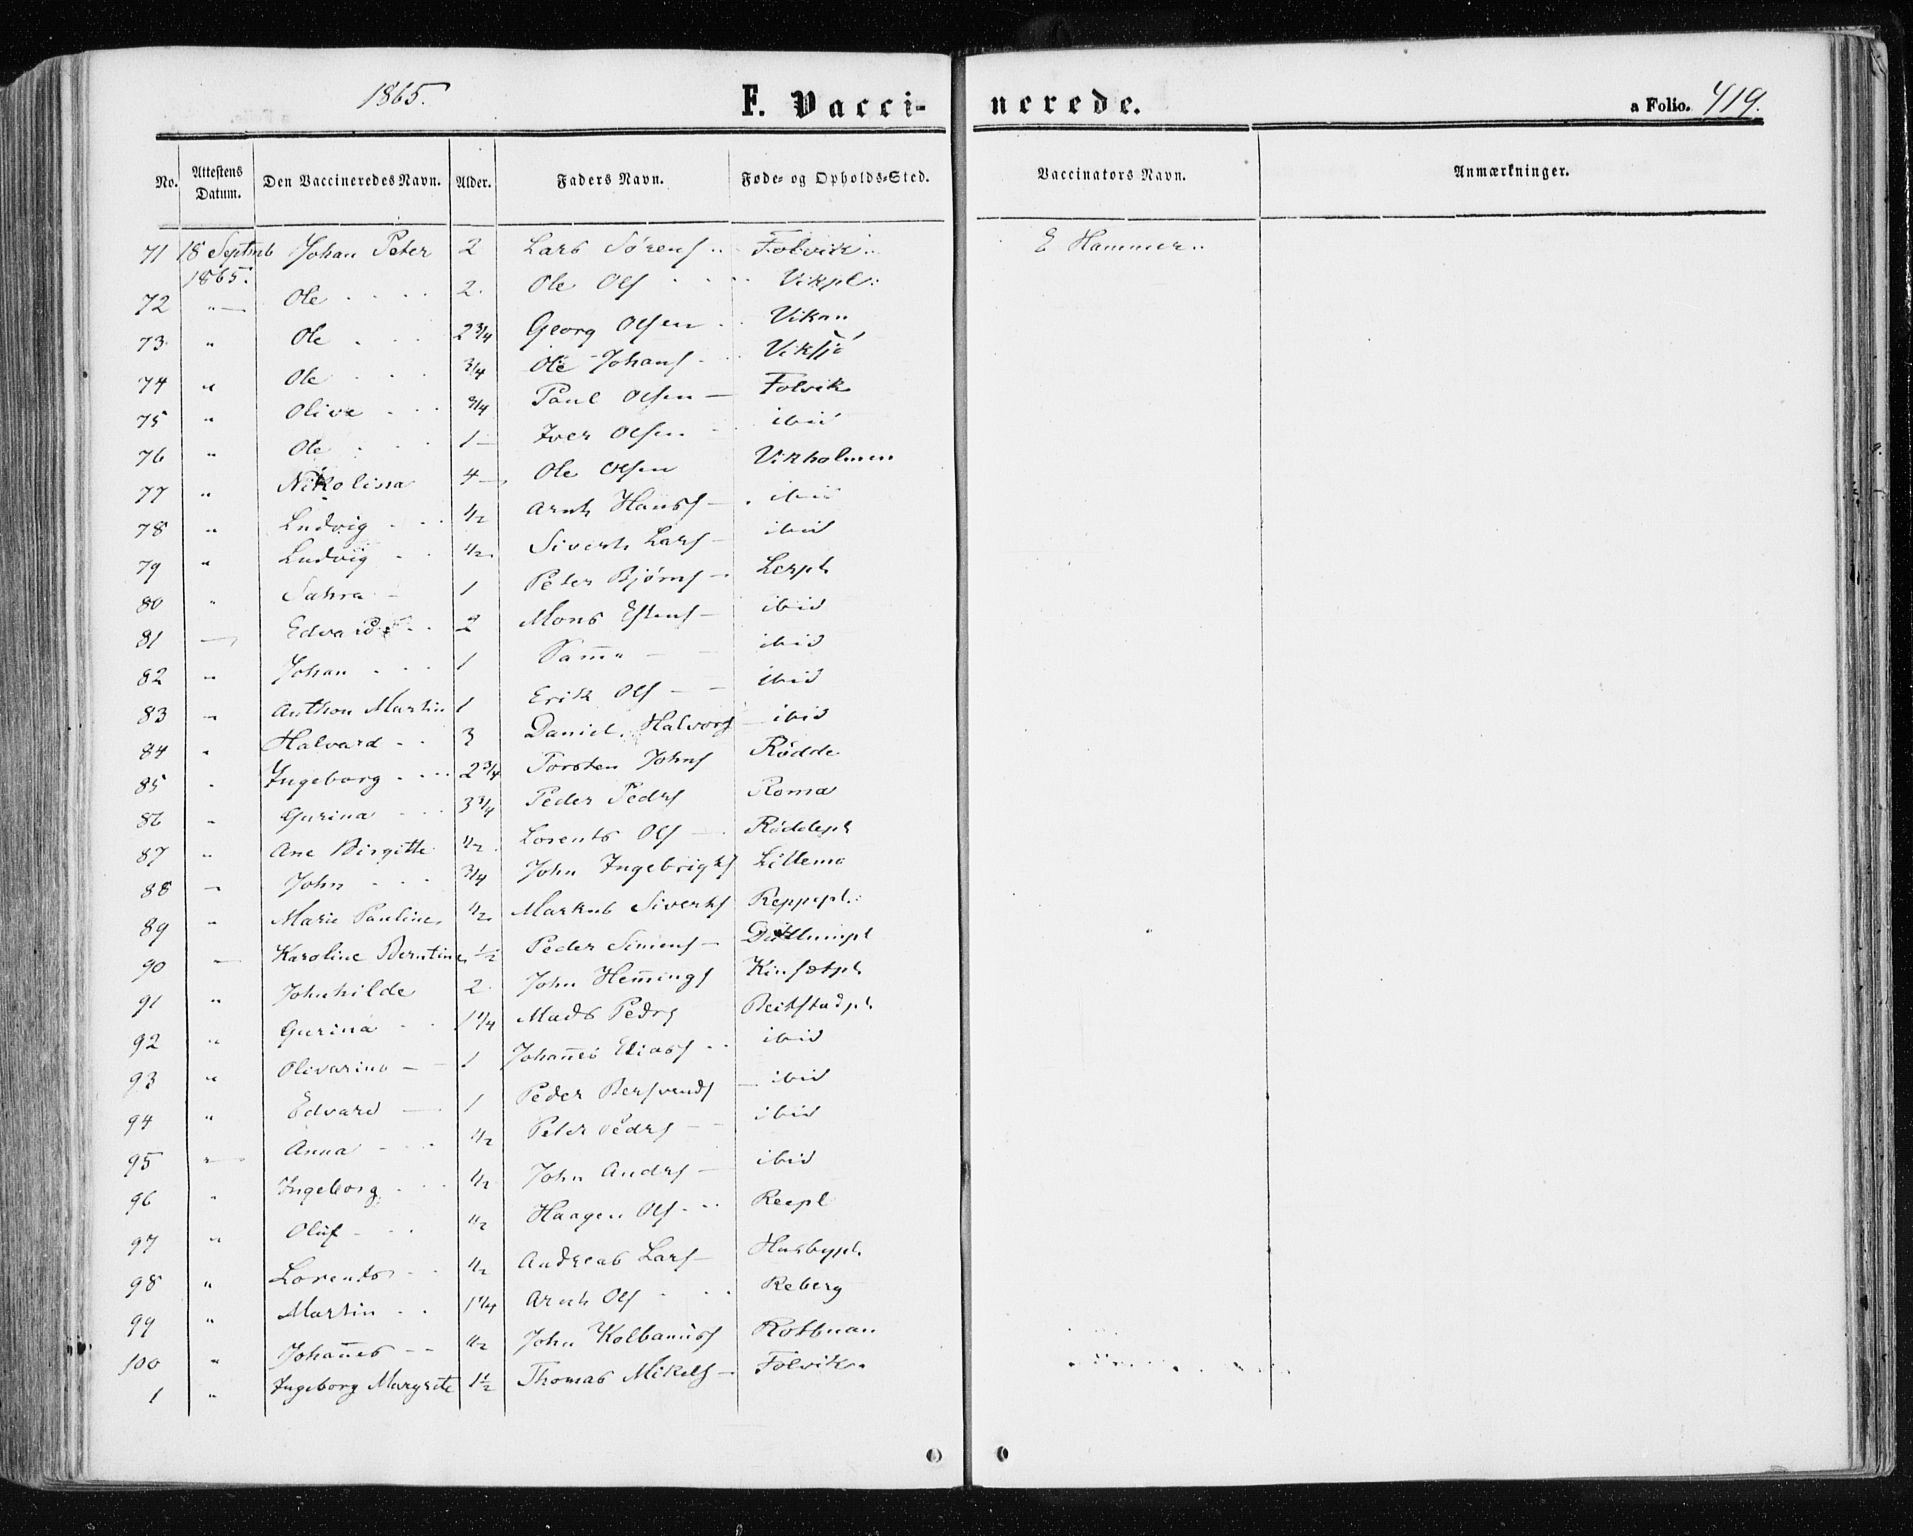 1865.
F. Vacci- nerede.
a Folio. 419.
No. Attestens Datum. Den Vaccineredes Navn. Alder. Faders Navn. Føde- og Opholds-Sted. Vaccinators Navn. Anmærkninger.
71 18 Septmb 1865. Johan Peter 2 Lars Sørens Folvik E Hammer
72 " Ole 2 Ole Ols Vikpl:
73 " Ole 2 3/4 Georg Olsen Vikan
74 " Ole 3/4 Ole Johans
75 " Olive 3/4 Paul Olsen Folvik
76 " Ole 1 Iver Olsen ibid
77 " Nikolissa 4 Ole Olsen Vikholmen
78 " Ludvig 1/2 Arnt Hans ibid
79 " Ludvig 1/2 Sivert Lars ibid
80 " Sahra 1 Peter Bjørns Lerpl
81 — Edvard 2 Mons Estens ibid
82 " Johan 1 Samme ibid
83 " Anthon Martin 1 Erik Ols ibid
84 " Halvard 3 Daniel Halvors ibid
85 " Ingeborg 2 3/4 Torsten Johns Rødde
86 " Gurina 3 3/4 Peder Peders Roma
87 " Ane Birgitte 1/2 Lorents Ols Røddepl
88 — John 3/4 John Ingebrigts Litlemo
89 " Marie Pauline 1/2 Markus Siverts Reppepl:
90 — Karoline Berntine 1/2 Peder Simens
91 " Johnhilde 2 John Hem̄ings Kinsetpl
92 " Gurina 1 1/4 Mads Peders Beitstadpl
93 " Olivarina 1 Johan̄es Elias ibid
94 " Edvard 1 Peder Bersvends ibid
95 — Anna 1/2 Peter Peders ibid
96 " Ingeborg 1/2 John Anders ibid
97 " Oluf 1/2 Haagen Ols Reepl
98 " Lorents 1/2 Andreas Lars Husbypl
99 " Martin 1 1/4 Arnt Ols Reberg
100 " Johan̄es 1/2 John Kolbanus
1 " Ingeborg Margrete 1 1/2 Thomas Mikels Folvik